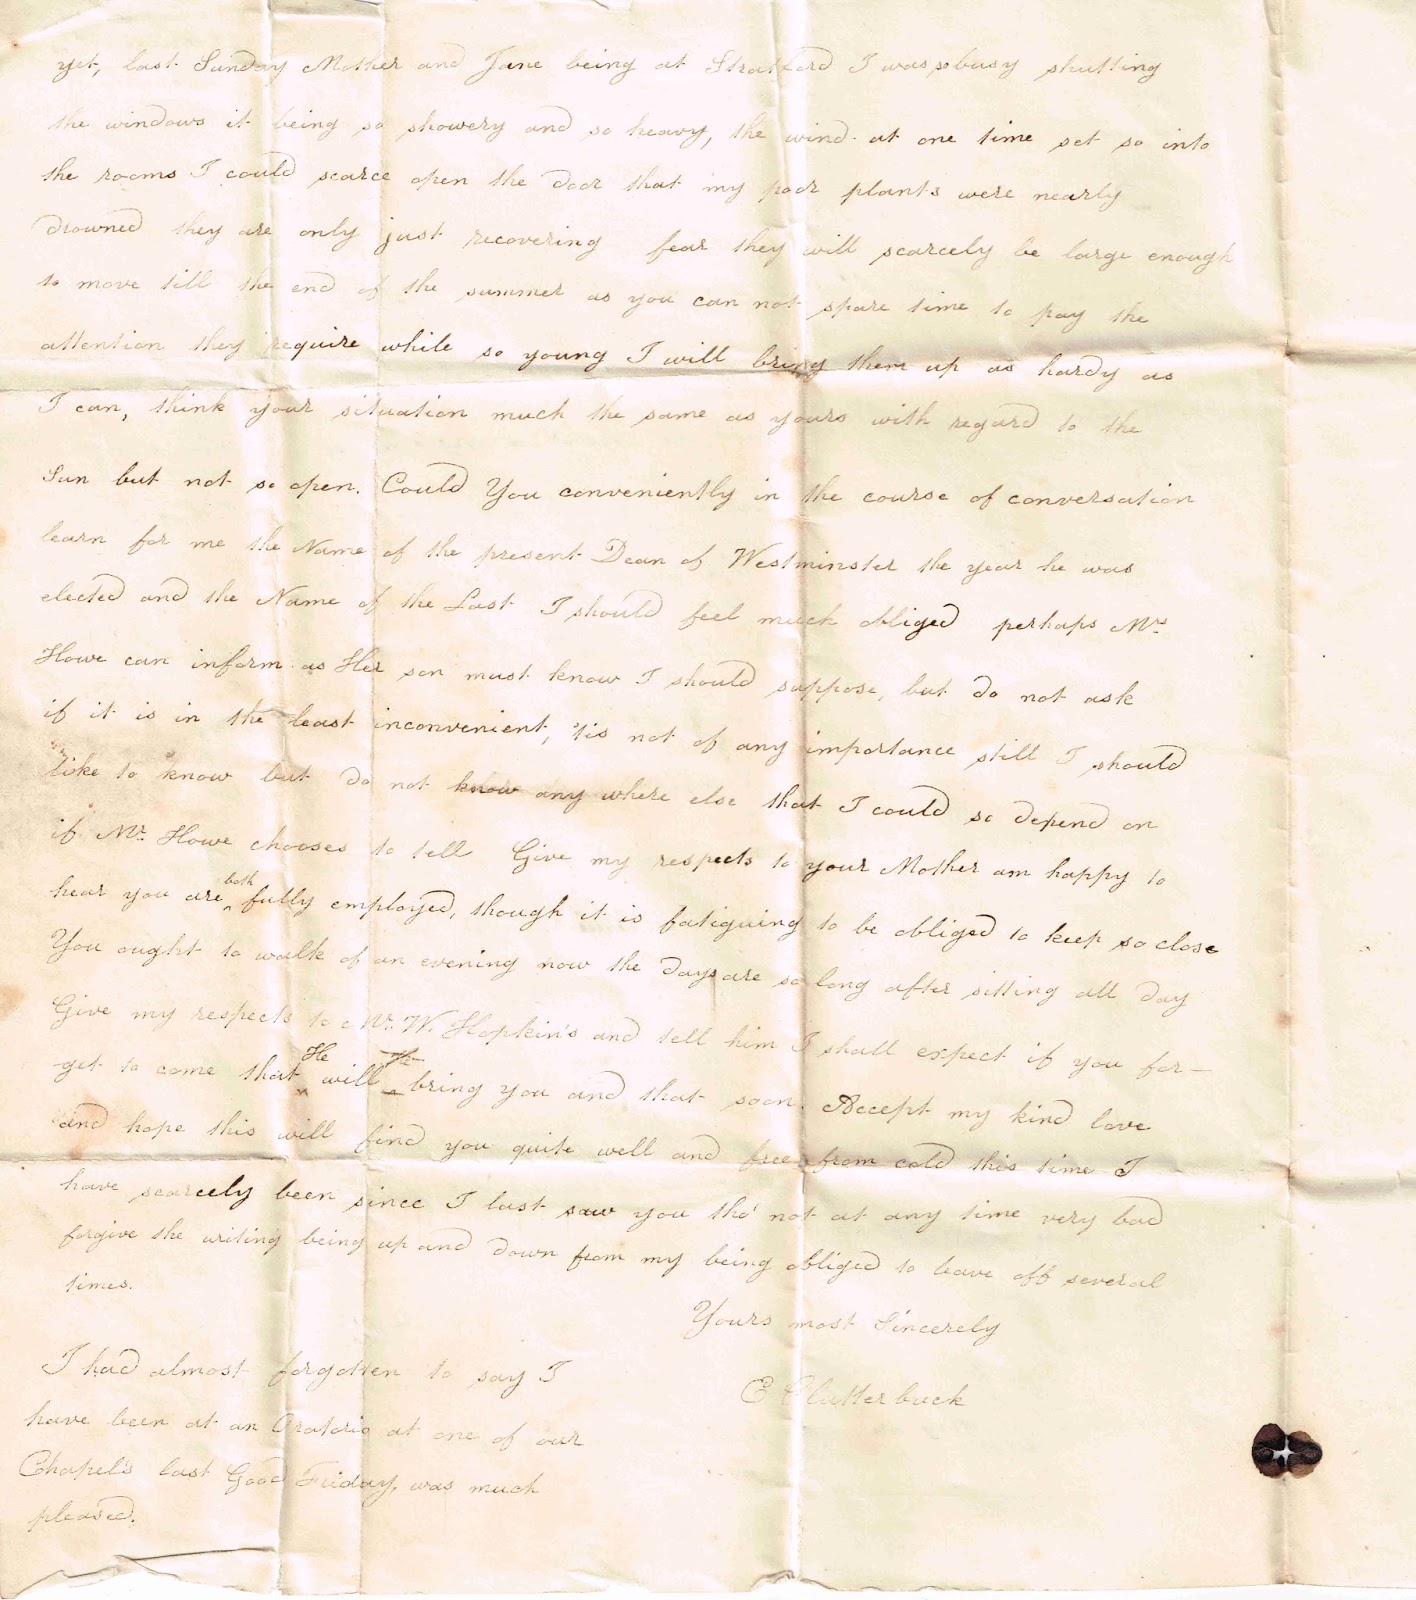 yet, last Sunday Mother and Jane being at Stratford I was busy shutting
the windows it being so showery and so heavy, the wind at one time set so into
the rooms I could scarce open the door that my poor plants were nearly
drowned they are only just recovering fear they will scarcely be large enough
to move till the end of the summer as you can not spare time to pay the
attention they require while so young I will bring them up as hardy as
I can, think your situation much the same as yours with regard to the
Sun but not so open. Could You conveniently in the course of conversation
learn for me the Name of the present Dean of Westminster the year he was
elected and the Name of the Last I should feel much obliged perhaps Mrs
Howe can inform as Her son must know I should suppose, but do not ask
if it is in the least inconvenient, 'tis not of any importance still I should
like to know but do not know any where else that I could so depend on
if Mr. Howe chooses to tell Give my respects to your Mother am happy to
hear you are both fully employed, though it is fatiguing to be obliged to keep so close
You ought to walk of an evening now the days are so long after sitting all day
Give my respects to Mr. W. Hopkin's and tell him I shall expect if you for-
get to come that He will bring you and that soon. Accept my kind love
and hope this will find you quite well and free from cold this time I
have scarcely been since I last saw you tho' not at any time very bad
forgive the writing being up and down from my being obliged to leave off several
times.
Yours most Sincerely
E Clutterbuck
I had almost forgotten to say I
have been at an Oratorio at one of our
Chapel's last Good Friday, was much
pleased.